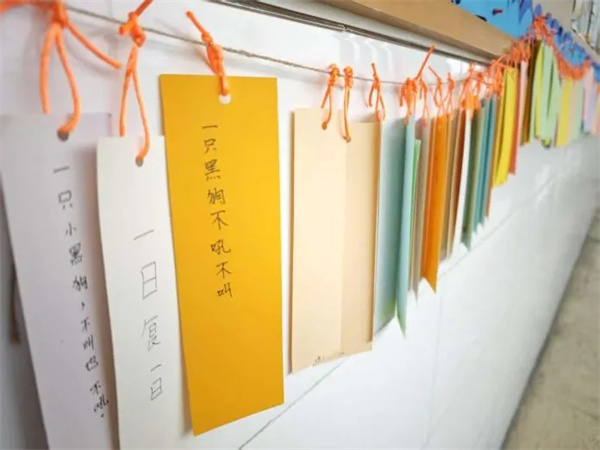 一只小黑狗，不叫也不吼。
一日复一日
一只黑狗不吼不叫